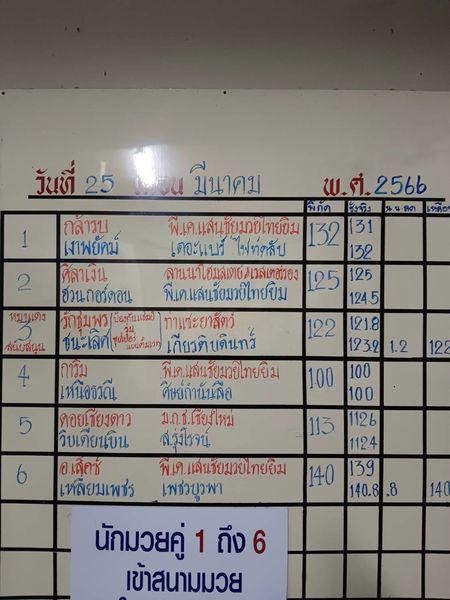 วันที่ 25 เดือน มีนาคม พ.ศ. 2566
พิกัด ชั่งจริง น.น.ลด เหลือ
1 กล้ารบ พี.เค.แสนชัยมวยไทยยิม 132 131
เงาพยัคฆ์ เดอะแบร์ ไฟท์คลับ 132
2 ศิลาเงิน ลานนาโฮมสเตย์ 125 125
ฮวนกอร์ดอน พี.เค.แสนชัยมวยไทยยิม 124.5
หมูแดง 3 สนับสนุน รักชุมพร (ป้องกันแชมป์) ท่าแซะยาสัตว์ 122 121.8
ชนะเลิศ เกียวคิบดินทร์ 123.2 1.2 122
4 การิม พี.เค.แสนชัยมวยไทยยิม 100 100
เหนือธรณี ศิษย์กำนันลือ 100
5 ดอยเชียงดาว ม.ก.ช.เชียงใหม่ 113 112.6
วิบเดียนบิน ส.รุ่งโรจน์ 112.4
6 อเล็คซ์ พี.เค.แสนชัยมวยไทยยิม 140 139
เหลี่ยมเพชร เพชรบูรพา 140.8 .8 140
นักมวยคู่ 1 ถึง 6
เข้าสนามมวย